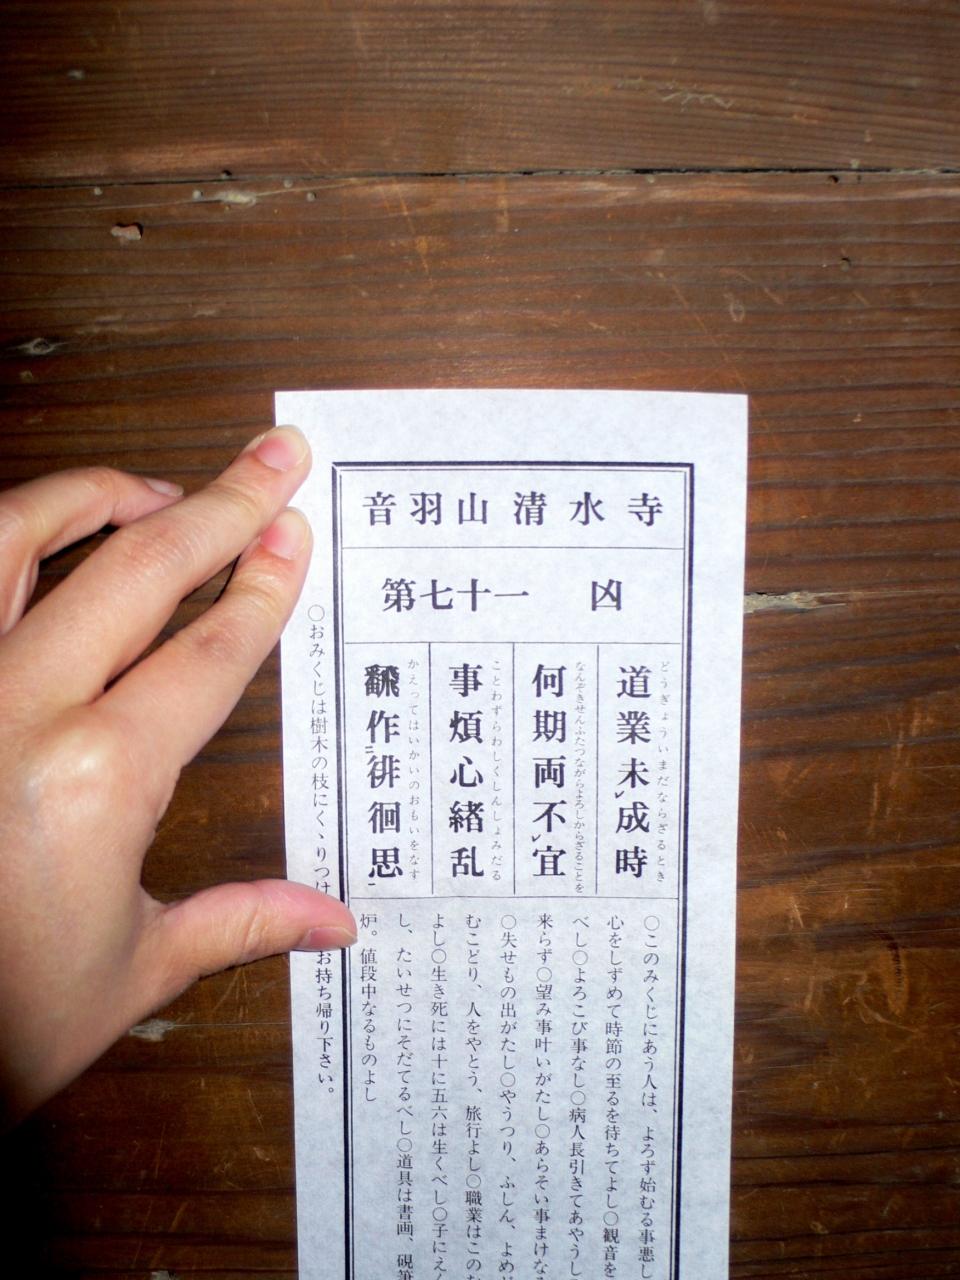 音羽山清水寺
第七十一 凶
道業未成時
どうぎょういまだならざるとき
何期両不宜
なんぞきせんふたつながらよろしからざることを
事煩心緒乱
ことわずらわしくしんしょみだる
翻作徘徊思
かえってはいかいのおもいをなす
○このみくじにあう人は、よろず始むる事悪し
心をしずめて時節の至るを待ちてよし○観音を
べし○よろこび事なし○病人長引きてあやうし
来らず○望み事叶いがたし○あらそい事まけな
○失せもの出がたし○やうつり、ふしん、よめ
むこどり、人をやとう、旅行よし○職業はこの
よし○生き死には十に五六は生くべし○子にえ
し、たいせつにそだてるべし○道具は書画、硯筆
炉。値段中なるものよし
○おみくじは樹木の枝にくゝりつけ お持ち帰り下さい。